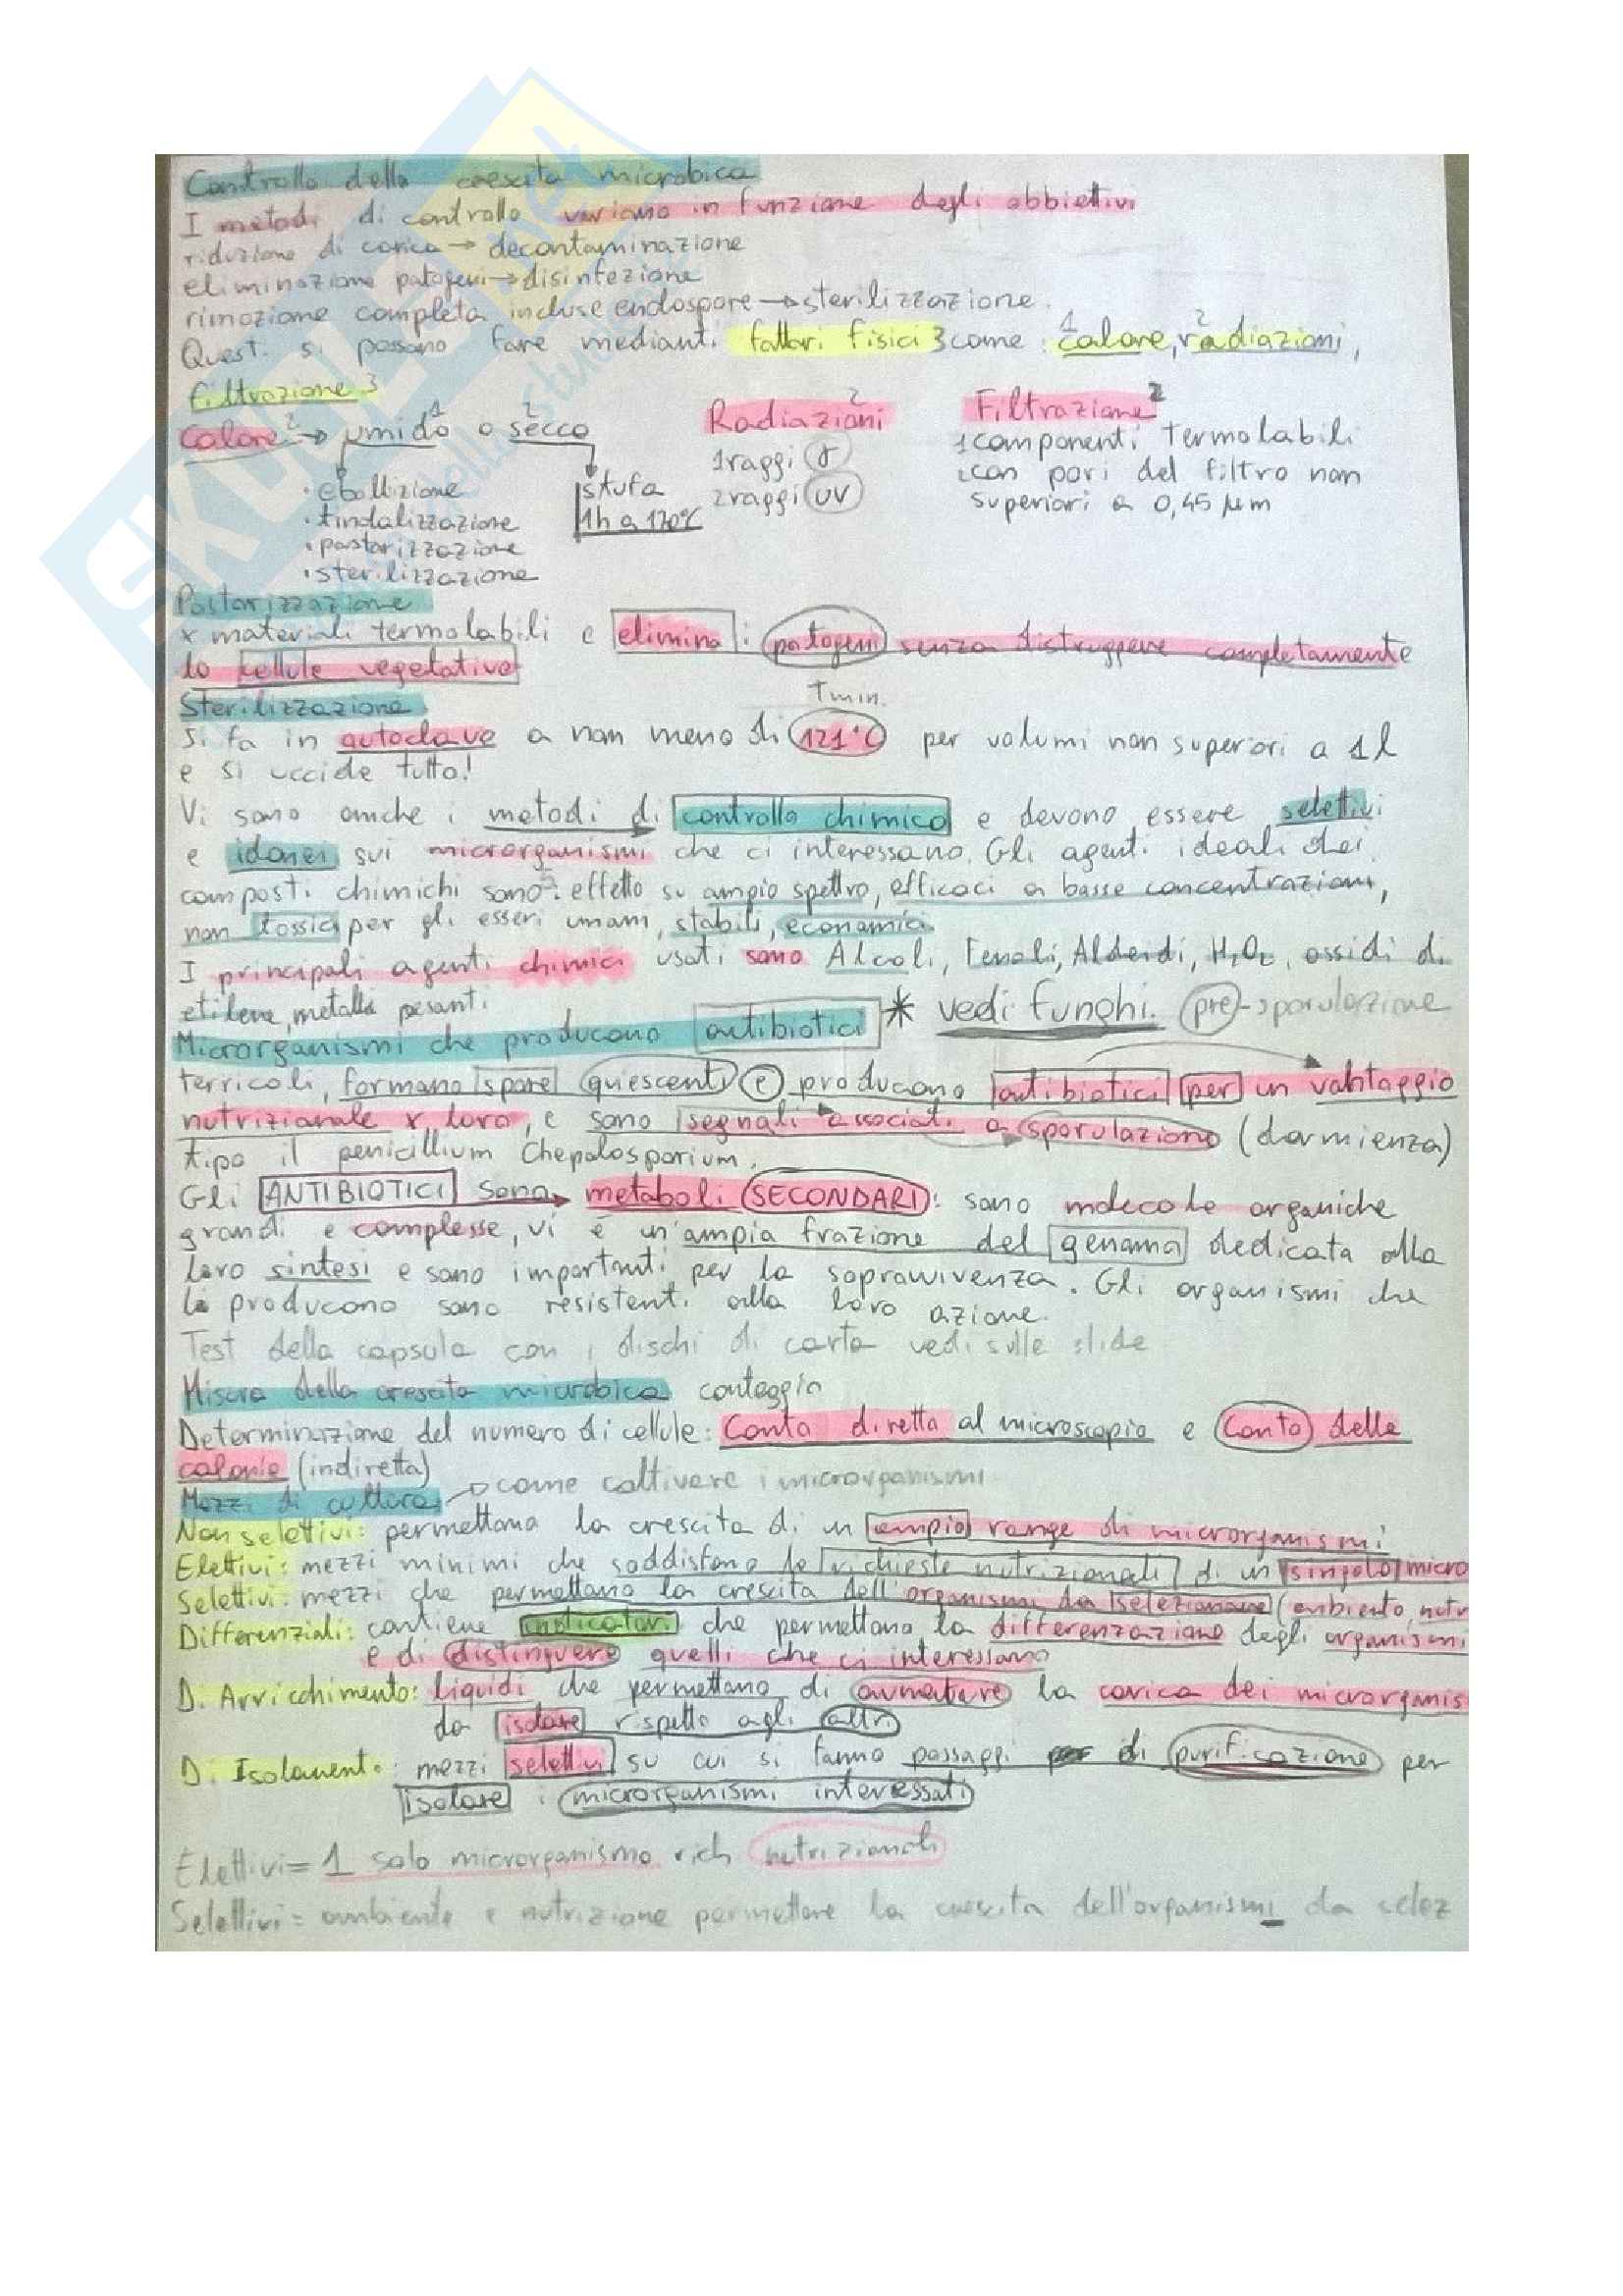 Controllo della crescita microbica
I metodi di controllo variano in funzione degli obbiettivi
riduzione di carica → decontaminazione
eliminazione patogeni → disinfezione
rimozione completa incluse endospore → sterilizzazione.
Questi si possono fare medianti fattori fisici 3 come: 1 calore, 2 radiazioni,
filtrazione 3
Calore 2 → umido 1 o secco 2
• ebollizione
• tindalizzazione
• pastorizzazione
• sterilizzazione
stufa
1h a 170°C
Radiazioni 2
1 raggi γ
2 raggi UV
Filtrazione 2
1 componenti termolabili
2 con pori del filtro non
superiori a 0,45 μm
Pastorizzazione
x materiali termolabili e elimina i patogeni senza distruggere completamente
le cellule vegetative
Sterilizzazione
T min.
Si fa in autoclave a non meno di 121°C per volumi non superiori a 1l
e si uccide tutto!
Vi sono anche i metodi di controllo chimico e devono essere selettivi
e idonei sui microrganismi che ci interessano. Gli agenti ideali dei
composti chimichi sono 5: effetto su ampio spettro, efficaci a basse concentrazioni,
non tossici per gli esseri umani, stabili, economici.
I principali agenti chimici usati sono Alcoli, Fenoli, Aldeidi, H₂O₂, ossidi di
etilene, metalli pesanti.
Microrganismi che producono antibiotici * vedi funghi. pre-sporulazione
terricoli, formano spore quiescenti e producono antibiotici per un vantaggio
nutrizionale x loro, e sono segnali associati a sporulazione (dormienza)
tipo il penicillium Chepalosporium.
Gli ANTIBIOTICI sono metaboli SECONDARI: sono molecole organiche
grandi e complesse, vi è un'ampia frazione del genoma dedicata alla
loro sintesi e sono importanti per la sopravvivenza. Gli organismi che
li producono sono resistenti alla loro azione.
Test della capsula con i dischi di carta vedi sulle slide
Misura della crescita microbica conteggio
Determinazione del numero di cellule: Conta diretta al microscopio e Conta delle
colonie (indiretta)
Mezzi di coltura → come coltivare i microrganismi
Non selettivi: permettono la crescita di un ampio range di microrganismi
Elettivi: mezzi minimi che soddisfano le richieste nutrizionali di un singolo micro
Selettivi: mezzi che permettono la crescita dell'organismi da selezionare (ambiente, nutr
Differenziali: contiene indicatori che permettono la differenziazione degli organismi
e di distinguere quelli che ci interessano
D. Arricchimento: liquidi che permettono di aumentare la carica dei microrganis
da isolare rispetto agli altri
D. Isolamento: mezzi selettivi su cui si fanno passaggi di purificazione per
isolare i microrganismi interessati
Elettivi = 1 solo microrganismo rich nutrizionali
Selettivi = ambiente e nutrizione permettere la crescita dell'organismi da selez